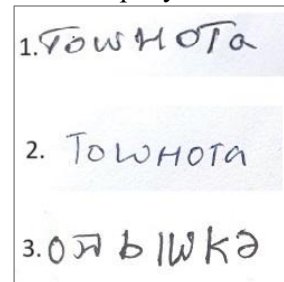 1. Тошнота
2. Тошнота
3. одышка